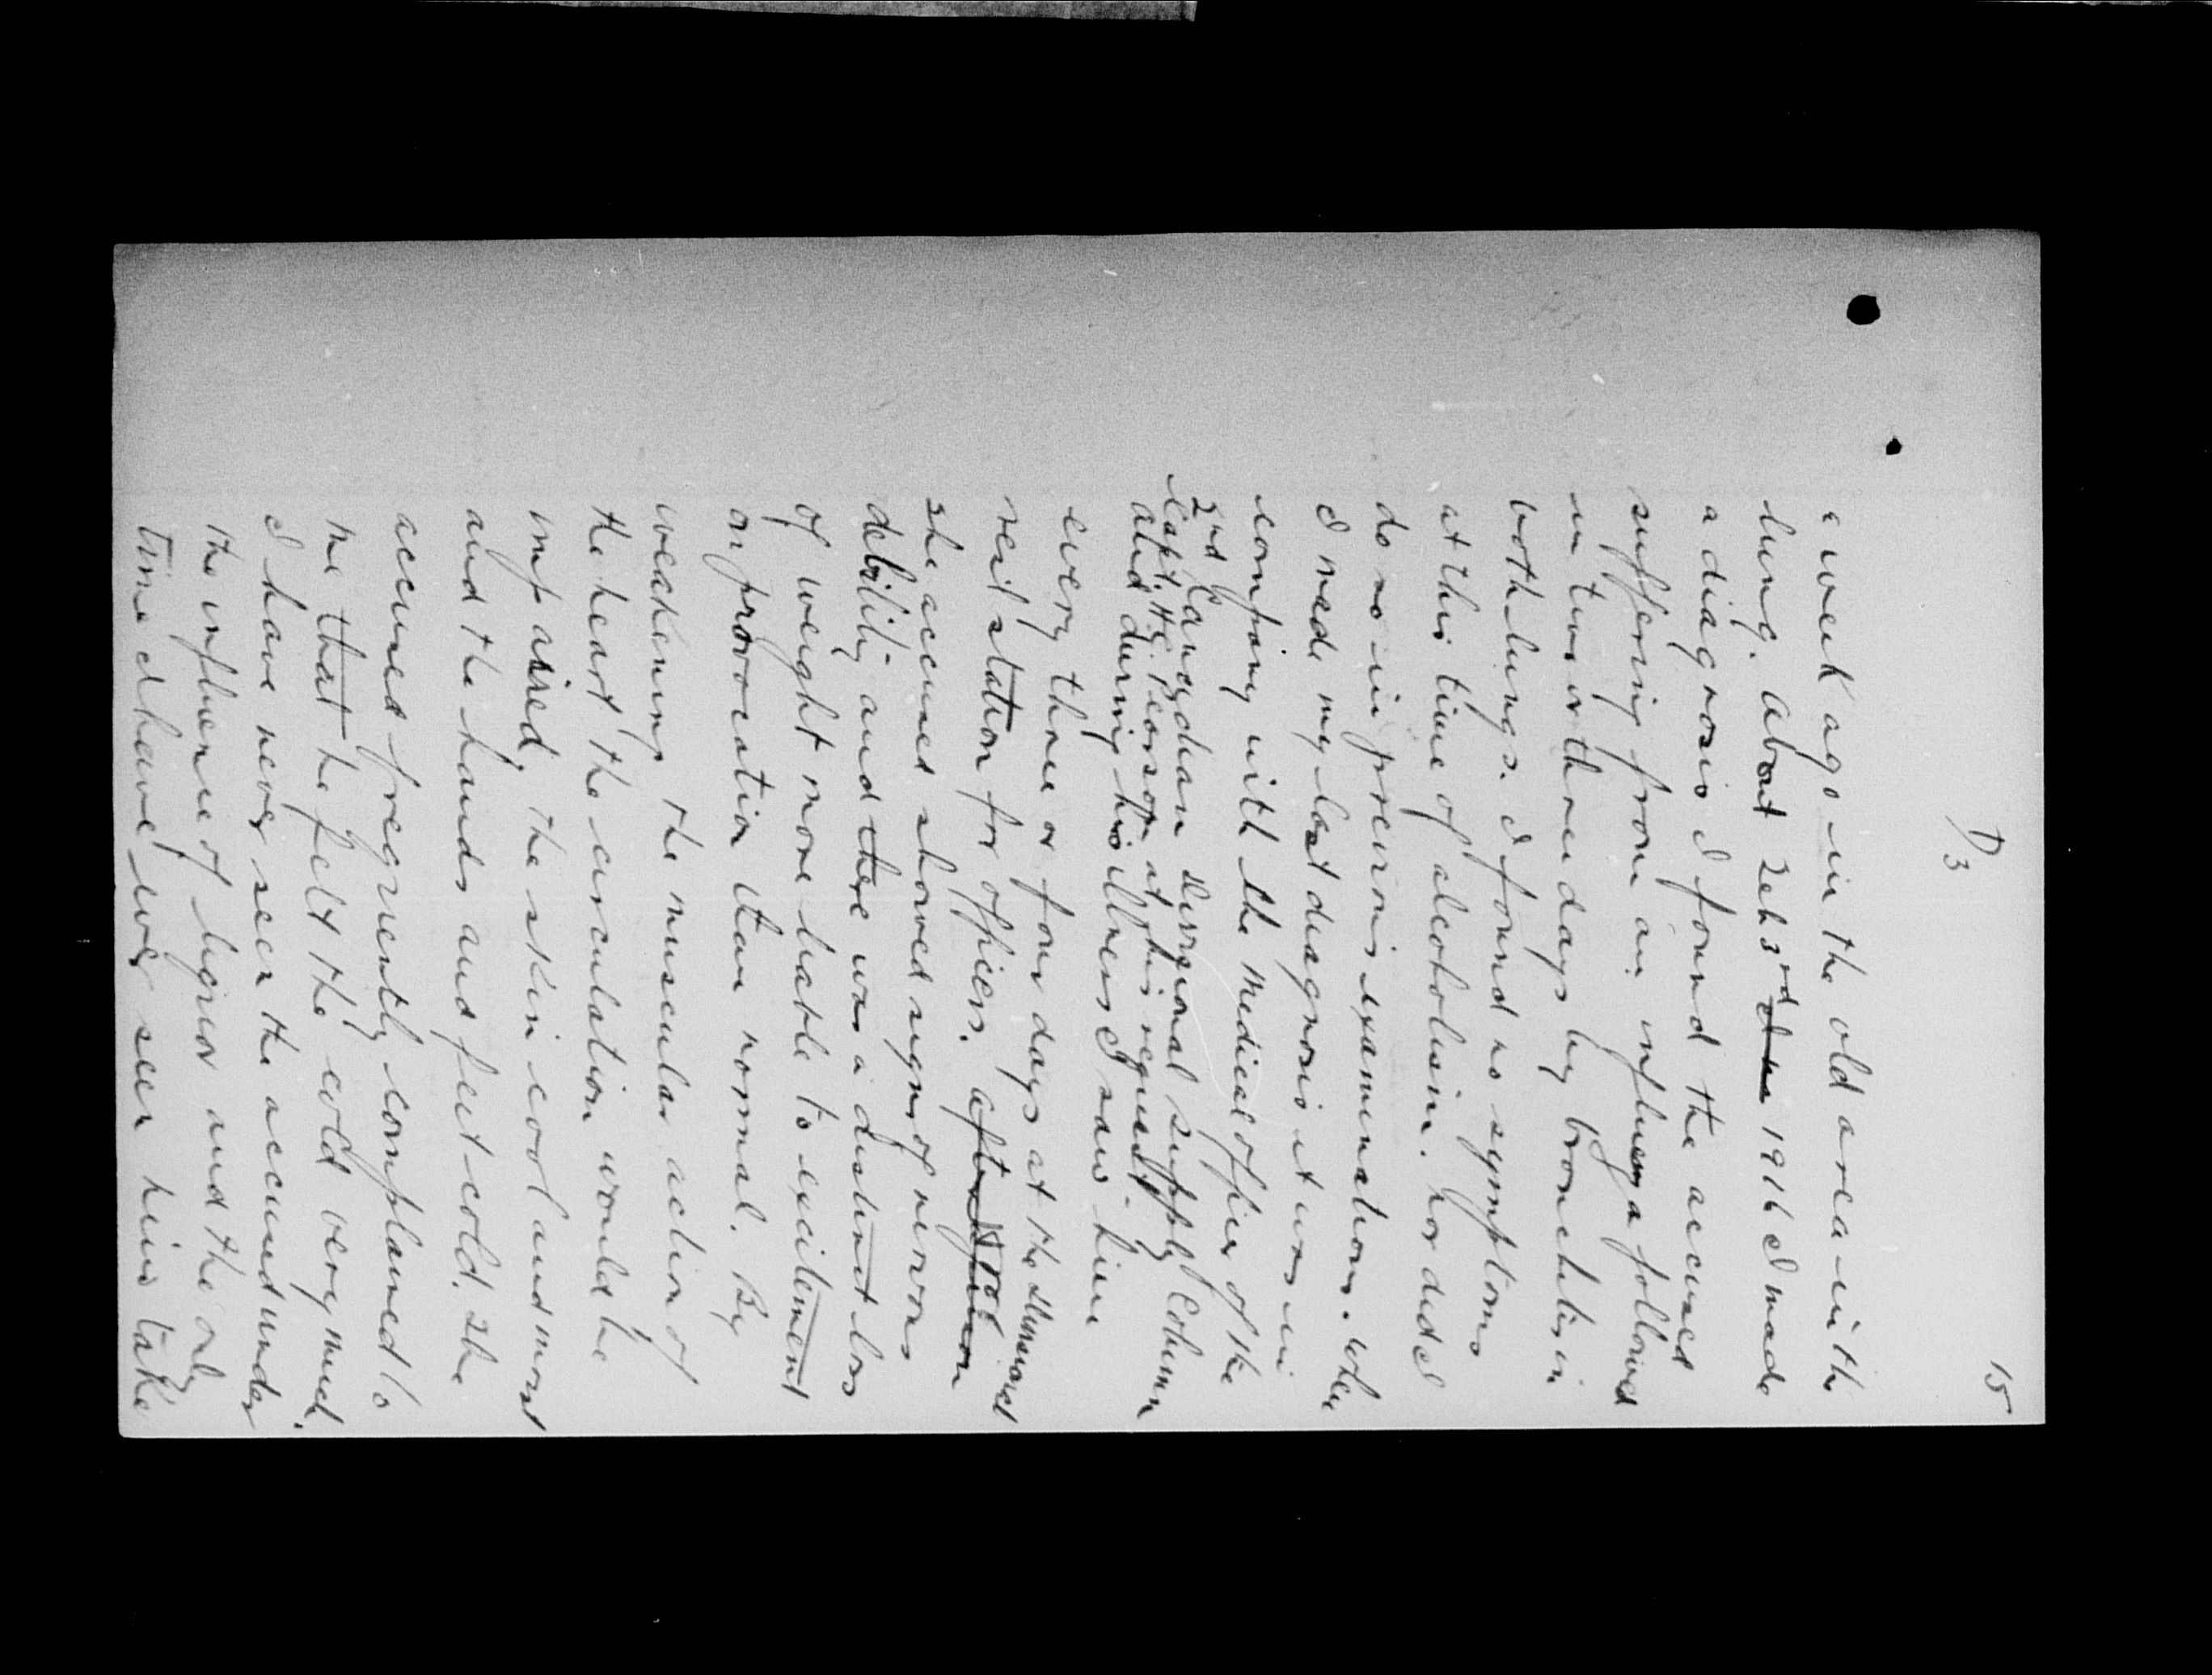 15
D3
a week ago in the old area in the
lung. About Feb 3rd 1916 I made
a diagnosis I found the accused
suffering from an influenza followed
in two or three days by bronchitis in
both lungs. I found no symptoms
at this time of alcoholism. nor did I
do so in previous examinations. When
I made my last diagnosis it was in
company with the medical officer of the
2nd Canadian Divisional Supply Column
Capt. H. Pearson at his request.
and during his illness I saw him
every three or four days at the divisional
rest station for officers. after
the accused showed signs of nervous
debility and there was a distinct loss
of weight more liable to excitement
on provocation than normal. By
weakening the muscular action of
the heart the circulation would be
impaired, the skin cool and moist
and the hands and feet cold. The
accused frequently complained to
me that he felt the cold very much.
I have never seen the accused under
the influence of liquor and the only
time I have ever seen him take